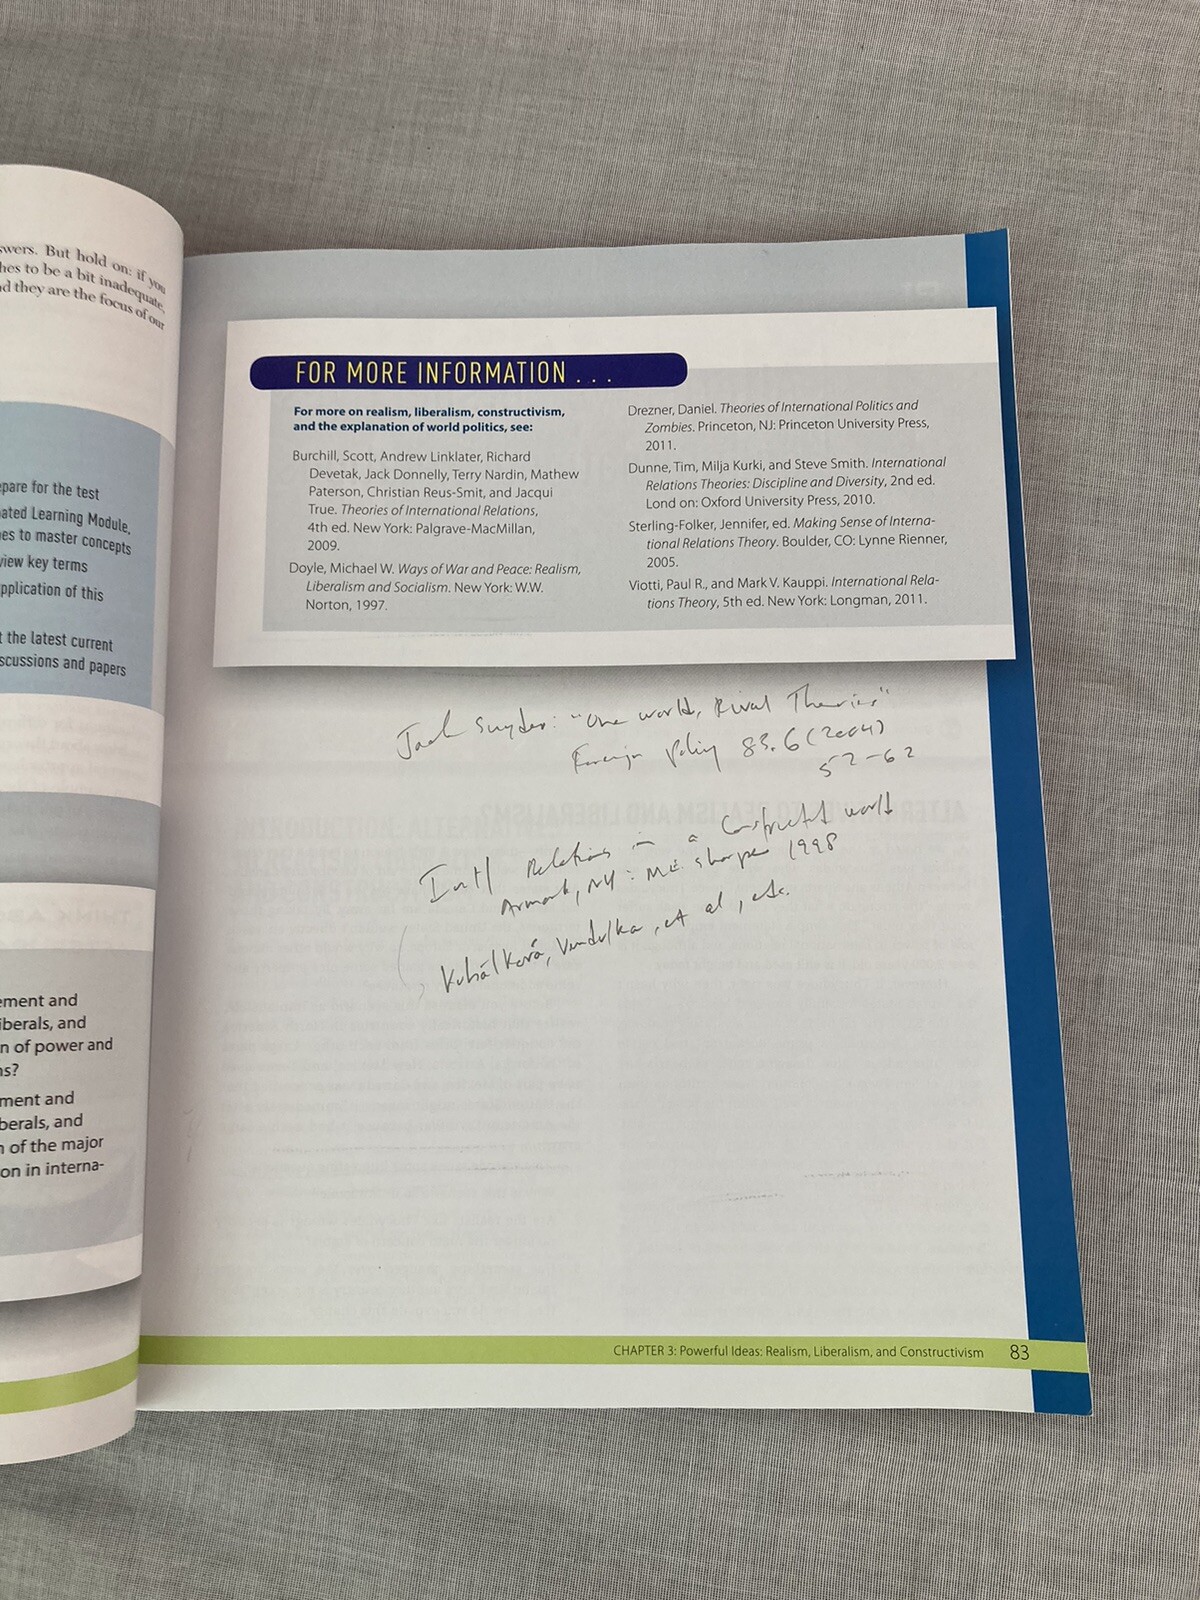 swers. But hold on: if you
hes to be a bit inadequate,
d they are the focus of our
pare for the test
ated Learning Module,
es to master concepts
view key terms
pplication of this
t the latest current
scussions and papers
ement and
iberals, and
n of power and
ns?
ment and
berals, and
n of the major
on in interna-
FOR MORE INFORMATION . . .
For more on realism, liberalism, constructivism,
and the explanation of world politics, see:
Burchill, Scott, Andrew Linklater, Richard
Devetak, Jack Donnelly, Terry Nardin, Mathew
Paterson, Christian Reus-Smit, and Jacqui
True. Theories of International Relations,
4th ed. New York: Palgrave-MacMillan,
2009.
Doyle, Michael W. Ways of War and Peace: Realism,
Liberalism and Socialism. New York: W.W.
Norton, 1997.
Drezner, Daniel. Theories of International Politics and
Zombies. Princeton, NJ: Princeton University Press,
2011.
Dunne, Tim, Milja Kurki, and Steve Smith. International
Relations Theories: Discipline and Diversity, 2nd ed.
Lond on: Oxford University Press, 2010.
Sterling-Folker, Jennifer, ed. Making Sense of Interna-
tional Relations Theory. Boulder, CO: Lynne Rienner,
2005.
Viotti, Paul R., and Mark V. Kauppi. International Rela-
tions Theory, 5th ed. New York: Longman, 2011.
Jack Snyder: "One world, Rival Theories"
Foreign Policy 83.6 (2004)
52-62
Int'l Relations in a Constructed world
Armonk, NY: M.E. Sharpe 1998
, Kubálková, Vendulka, et al, etc.
CHAPTER 3: Powerful Ideas: Realism, Liberalism, and Constructivism 83